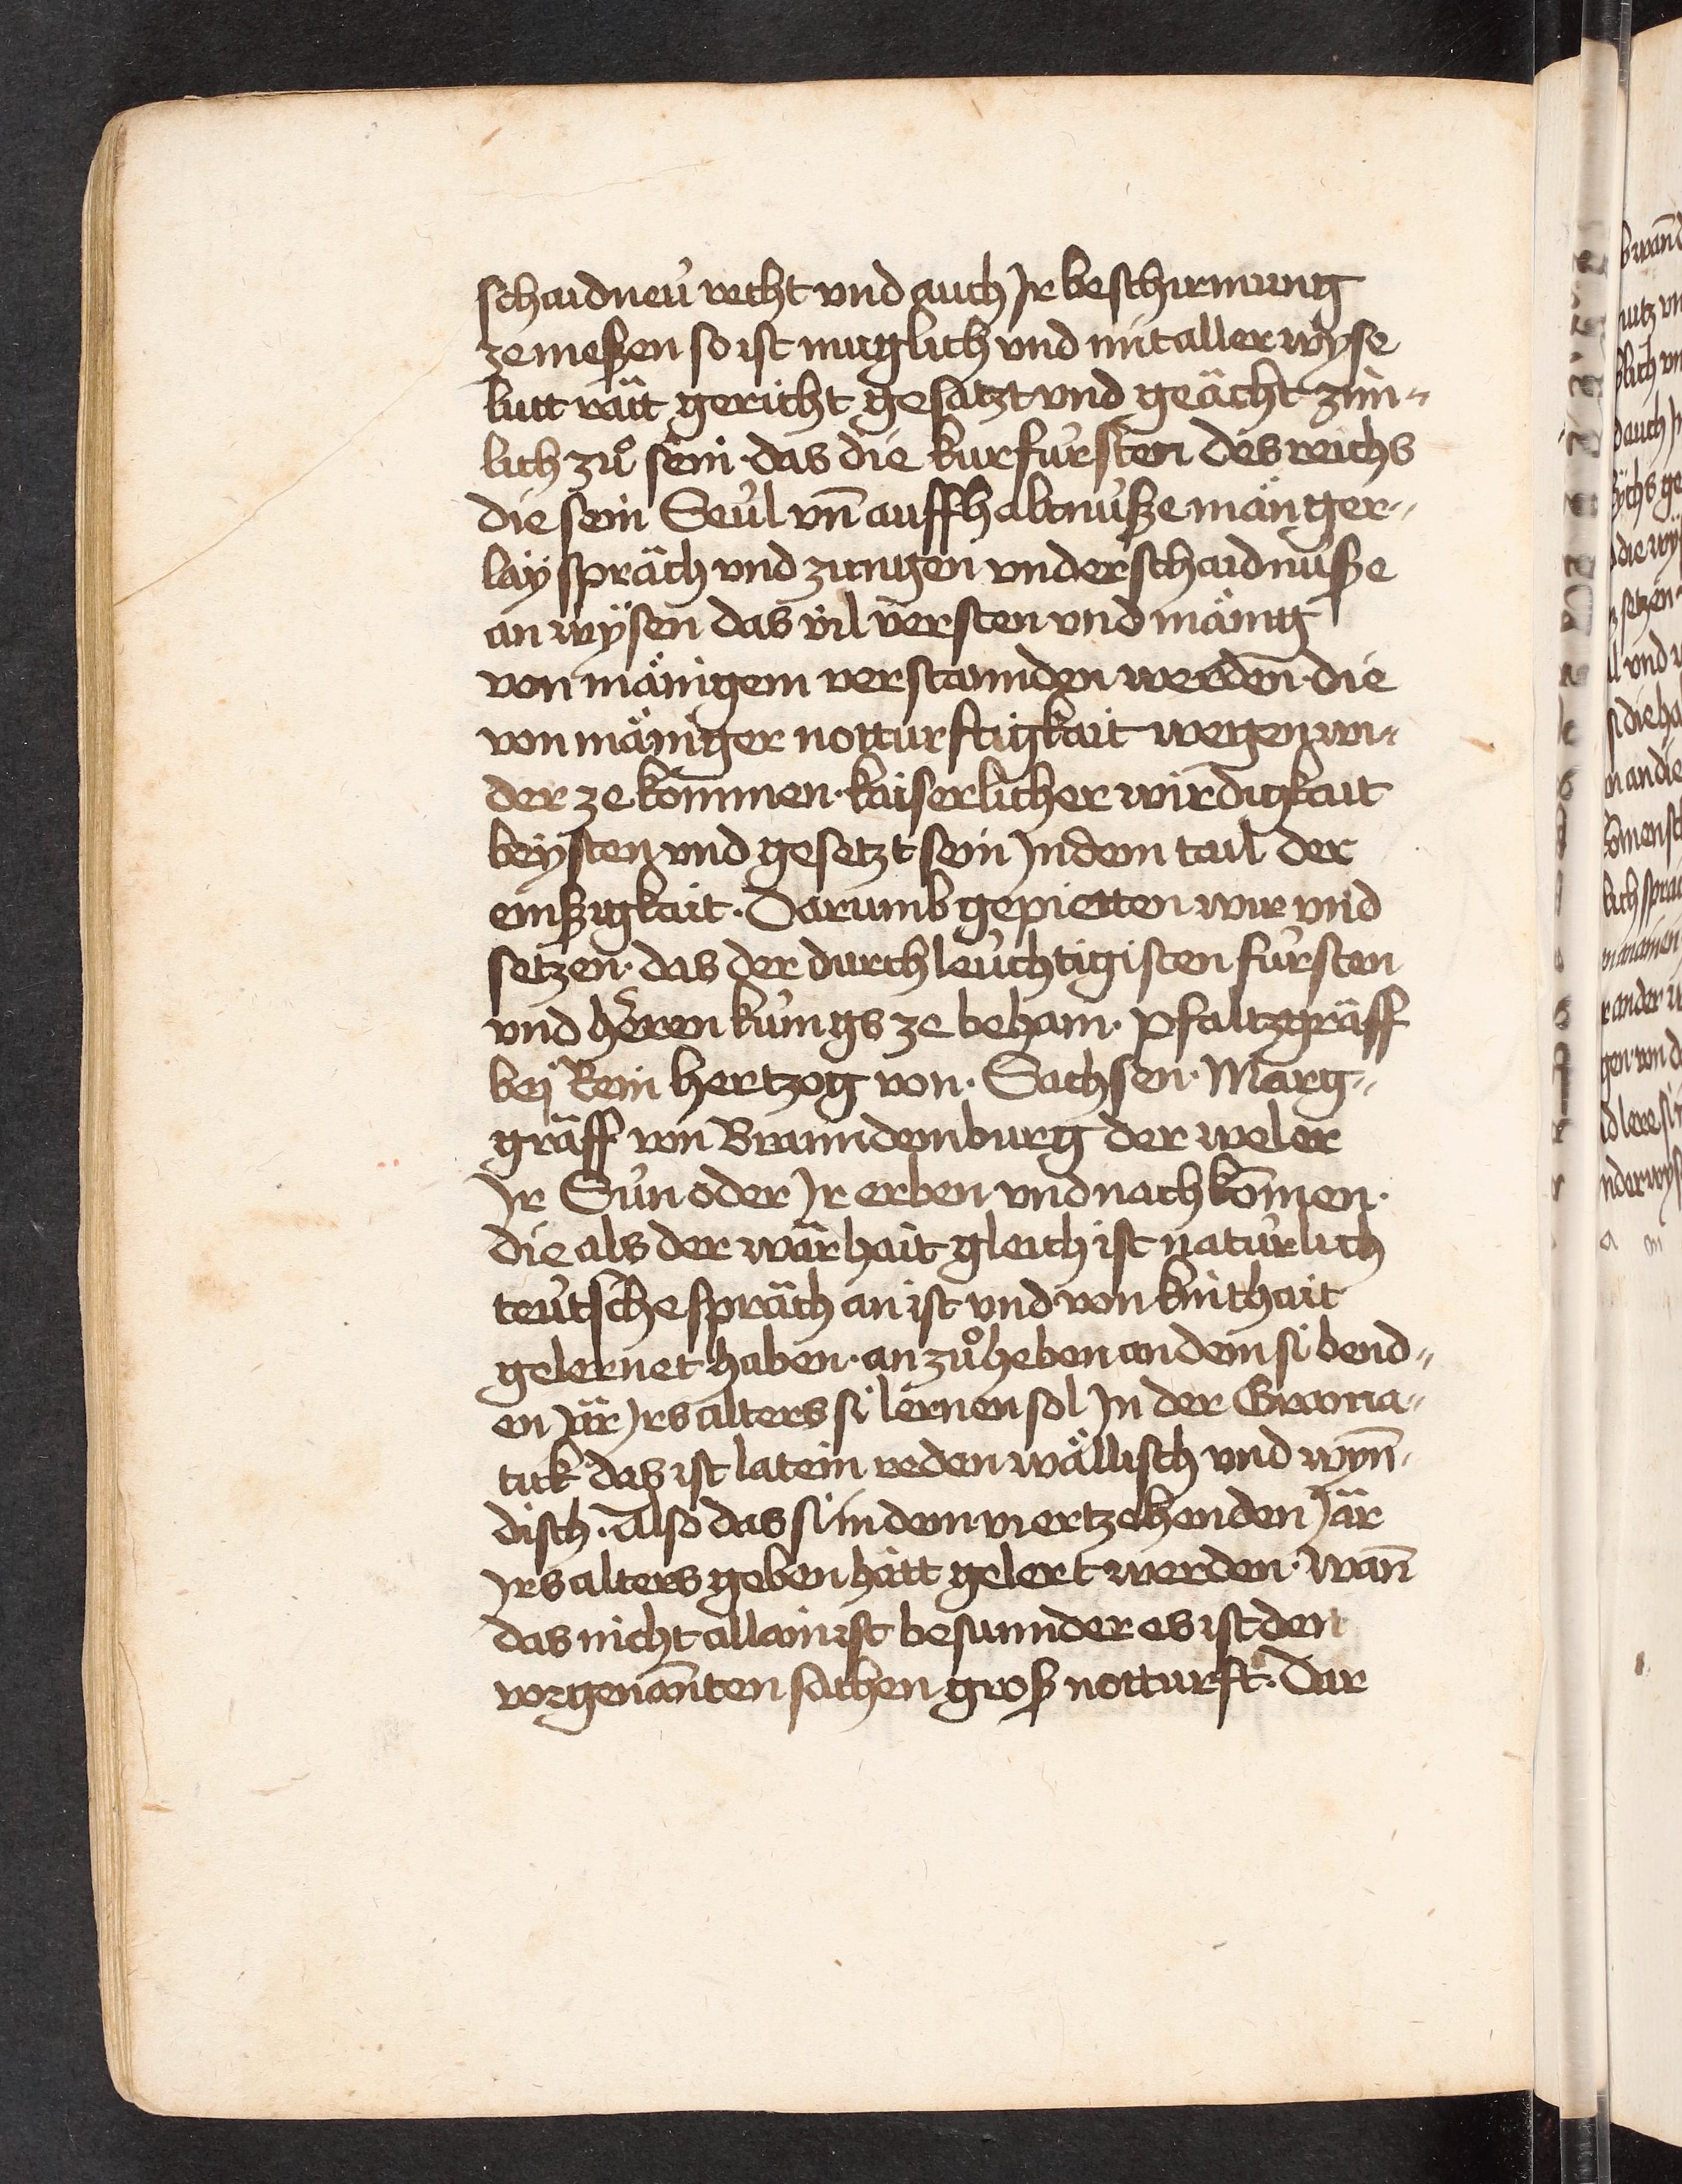 schaidneu̇ recht vnd auch Jr beschirmung
ze meßen so ist muglich vnd mit aller wyse
lutt rät gericht gesatzt vnd geächt zim-
lich zů sein · das die kurfürsten des reichs
die sein Seu̇l vn̄ auffhabtnu̇ße mänger-
laÿ spräch vnd zungen vnderschaidnu̇ße
an wÿsen das vil versten vnd mänig
von mänigem verstannden werden · die
von mäniger notturftigkait wegen wi-
der ze kōmmen · kaiserlicher wirdigkait
beÿsten vnd gesetzt sein Jn dem tail der
emßigkait · Darumb gepietten wir vnd
setzen · das der durchleu̇chtigisten fürsten
vnd heren kungs ze beham · pfaltzgräff
beÿ Rein hertzog von · Sachsen · Marg-
gräff von Branndemburg der weler
Jr Sün oder Jr erben vnd nachkōmen ·
die als der wärhait gleich ist natu̇rlich
teu̇tsche spräch an ist vnd von kinthait
gelernet haben · an zůheben an dem sibend-
en Jär Jrs alters si lernen sol Jn der Grama-
tick das ist latein reden wällisch vnd wyn̄-
disch · Also das si in dem viertzehenden Jär
Jrs alters geben hätt gelert werden · wan̄
das nicht allain ist besunnder es ist den
vorgenan̄ten sachen groß notturft · Dar